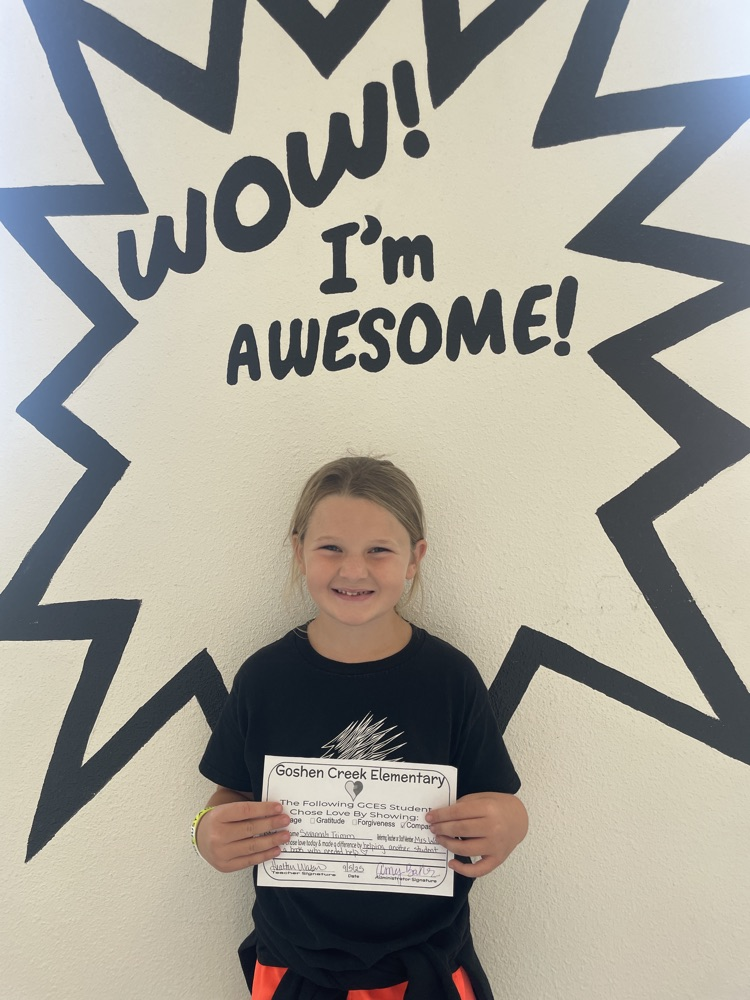 WOW!
I'm
AWESOME!
Goshen Creek Elementary
The Following GCES Student
Chose Love By Showing:
age □Gratitude □Forgiveness ☑Compas
me Savannah Timm Referring Teacher or Staff Member Mrs. W
chose love today & made a difference by helping another student
book who needed help
Teacher Signature 9/5/23 Date Administrator Signature